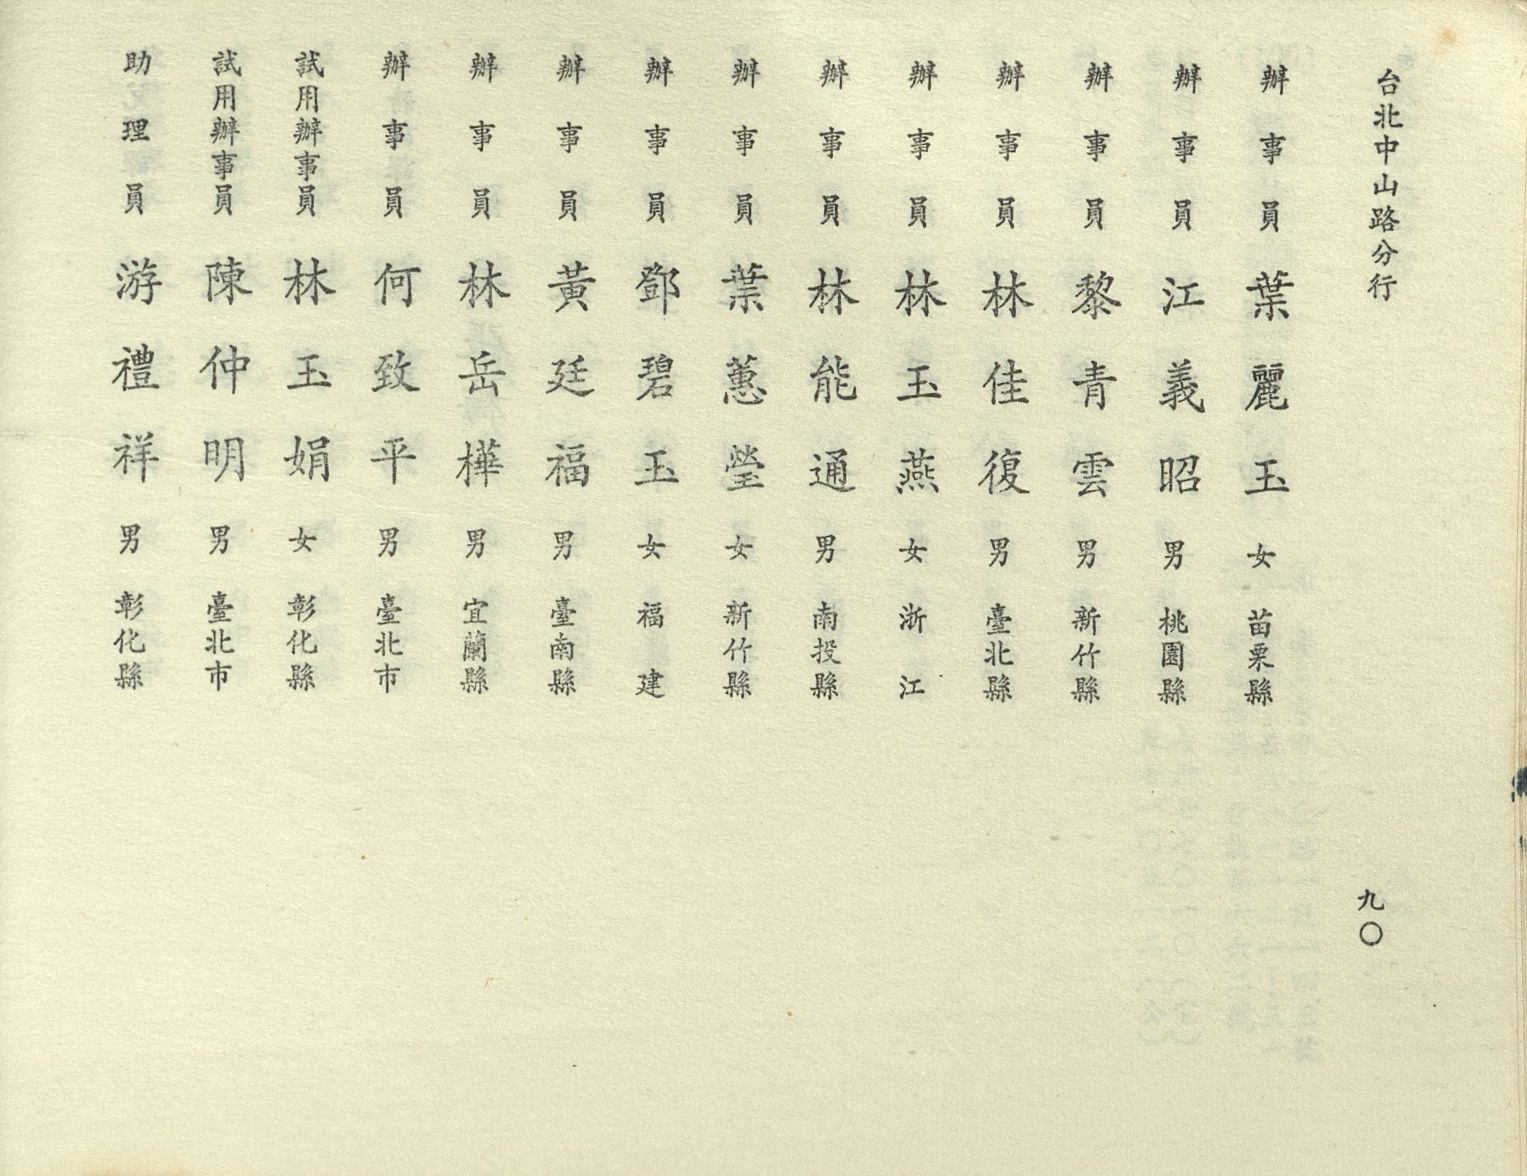 台北中山路分行
九〇
辦事員 葉麗玉 女 苗栗縣
辦事員 江義昭 男 桃園縣
辦事員 黎青雲 男 新竹縣
辦事員 林佳復 男 臺北縣
辦事員 林玉燕 女 浙江
辦事員 林能通 男 南投縣
辦事員 葉蕙瑩 女 新竹縣
辦事員 鄧碧玉 女 福建
辦事員 黃廷福 男 臺南縣
辦事員 林岳樺 男 宜蘭縣
辦事員 何致平 男 臺北市
試用辦事員 林玉娟 女 彰化縣
試用辦事員 陳仲明 男 臺北市
助理員 游禮祥 男 彰化縣